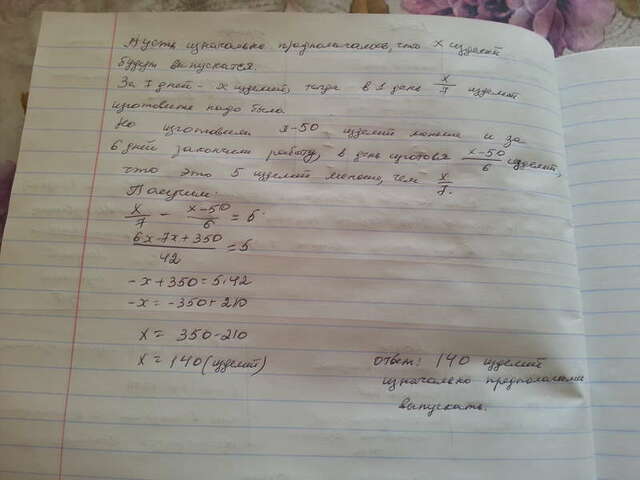 Пусть изначально предполагалось, что x изделий
будет выпускатся.
За 7 дней - x изделий, тогда в 1 день x/7 изделий
изготовить надо было
Но изготовили x-50 изделий меньше и за
6 дней закончили работу, в день изготовя (x-50)/6 изделий,
что это 5 изделий меньше, чем x/7.
Получим:
x/7 - (x-50)/6 = 5
(6x-7x+350)/42 = 5
-x+350=5·42
-x=-350+210
x= 350-210
x=140(изделий)
Ответ: 140 изделий
изначально предполагали
выпускать.